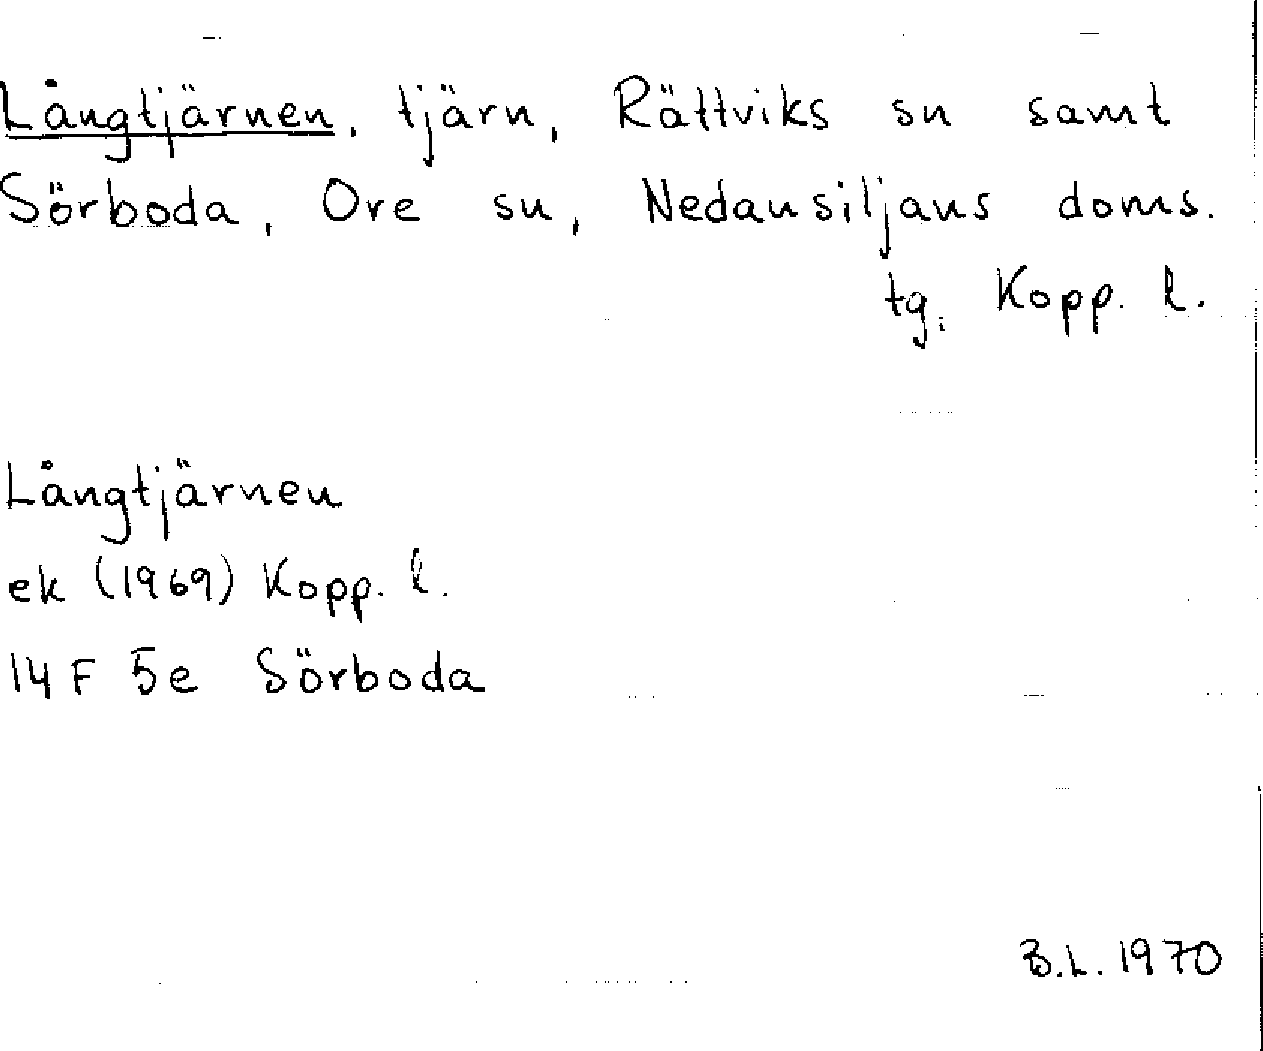 Långtjärnen, tjärn, Rättviks sn samt
Sörboda, Ore sn, Nedansiljans doms.
tg, Kopp. l.
Långtjärnen
ek (1969) Kopp. l.
14 F 5e Sörboda
B.L. 1970